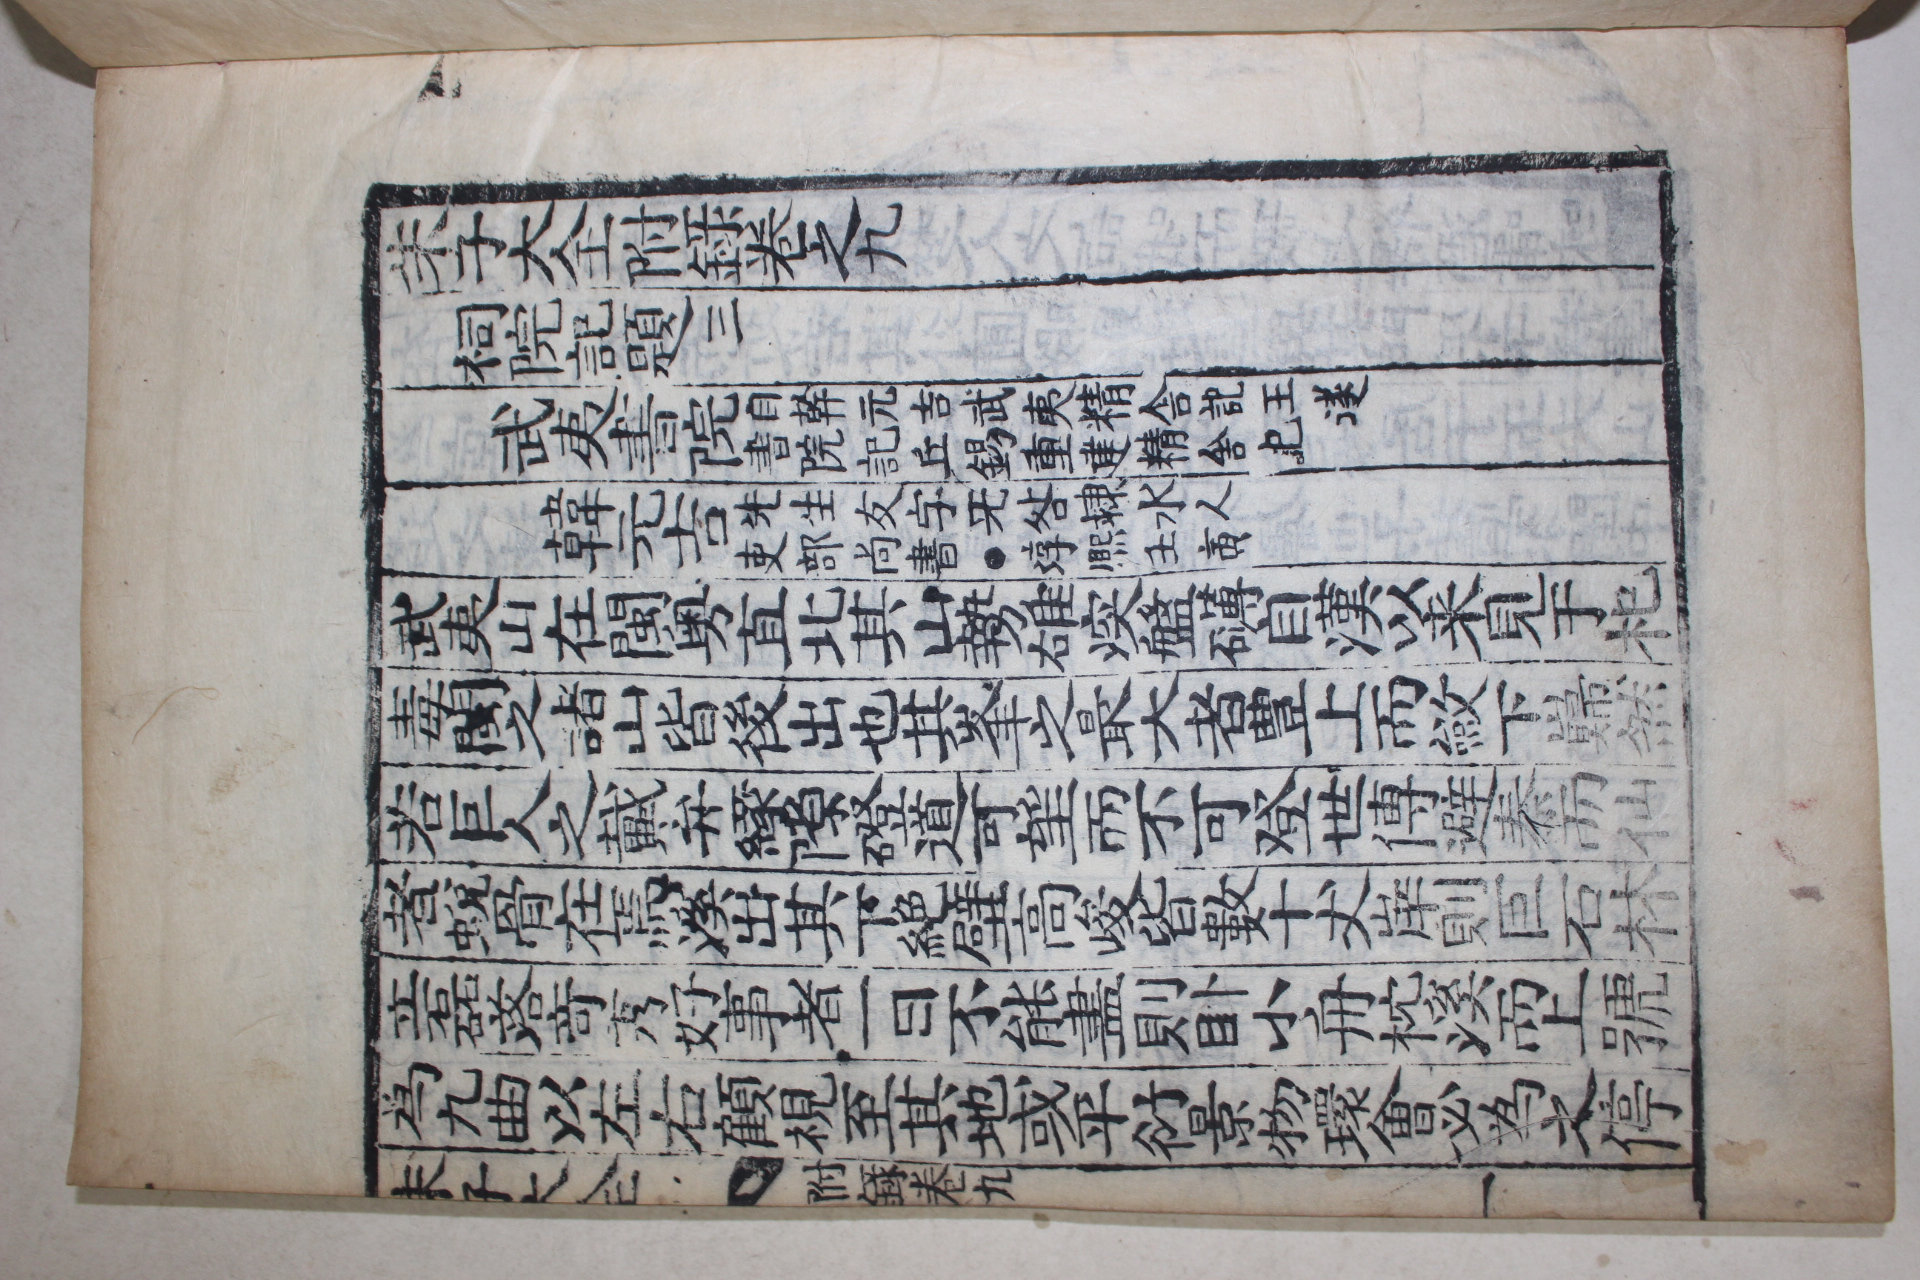 朱子大全附錄卷之九
祠院記題三
武夷書院
自幹元吉武夷精舍記王遂
書院記丘錫重建精舍記
韓元吉
先生友字无咎隷水人
吏部尚書●淳熙壬寅
武夷山在閩粤直北其山勢雄深盤礴自漢以来見于祀
毒閩之諸山皆後出也其峯之最大者豊上而斂下巋然
若巨人之戴弁緣隙磴道可望而不可登世傳避秦而仙
者蛻骨在焉溪出其下絶壁高峻皆數十丈岸則巨石林
立磊落奇秀好事者一日不能盡則卧小舟枕溪而上號
為九曲以左右顧視至其地或平衍景物環會必為之停
朱子大全 附錄卷九 一